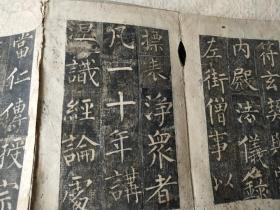 符玄
内殿法儀錄
左街僧事以
標表淨衆者
凡一十年講
涅識經論處
當仁傳授宗